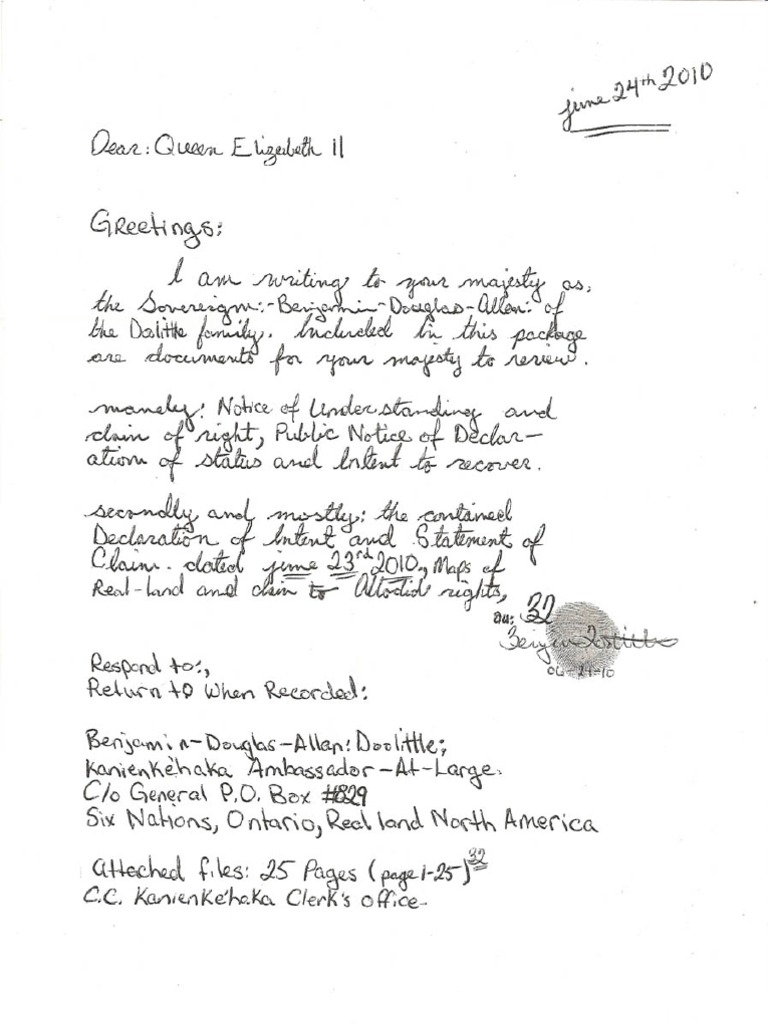 june 24th 2010
Dear: Queen Elizabeth II
Greetings:
I am writing to your majesty as,
the Sovereign:-Benjamin-Douglas-Allan: of
the Doolittle family. Included in this package
are documents for your majesty to review.
namely: Notice of Understanding and
claim of right, Public Notice of Declar-
ation of status and Intent to recover.
secondly and mostly: the contained
Declaration of Intent and Statement of
Claim. dated june 23rd 2010., Maps of
Real-land and claim to Allodial rights,
au: 32
06-24-10
Respond to:,
Return to When Recorded:
Benjamin-Douglas-Allan: Doolittle;
Kanienkéhaka Ambassador-At-Large.
C/o General P.O. Box #829
Six Nations, Ontario, Real land North America
Attached files: 25 Pages (page 1-25) 32
C.C. Kanienkéhaka Clerk's office-